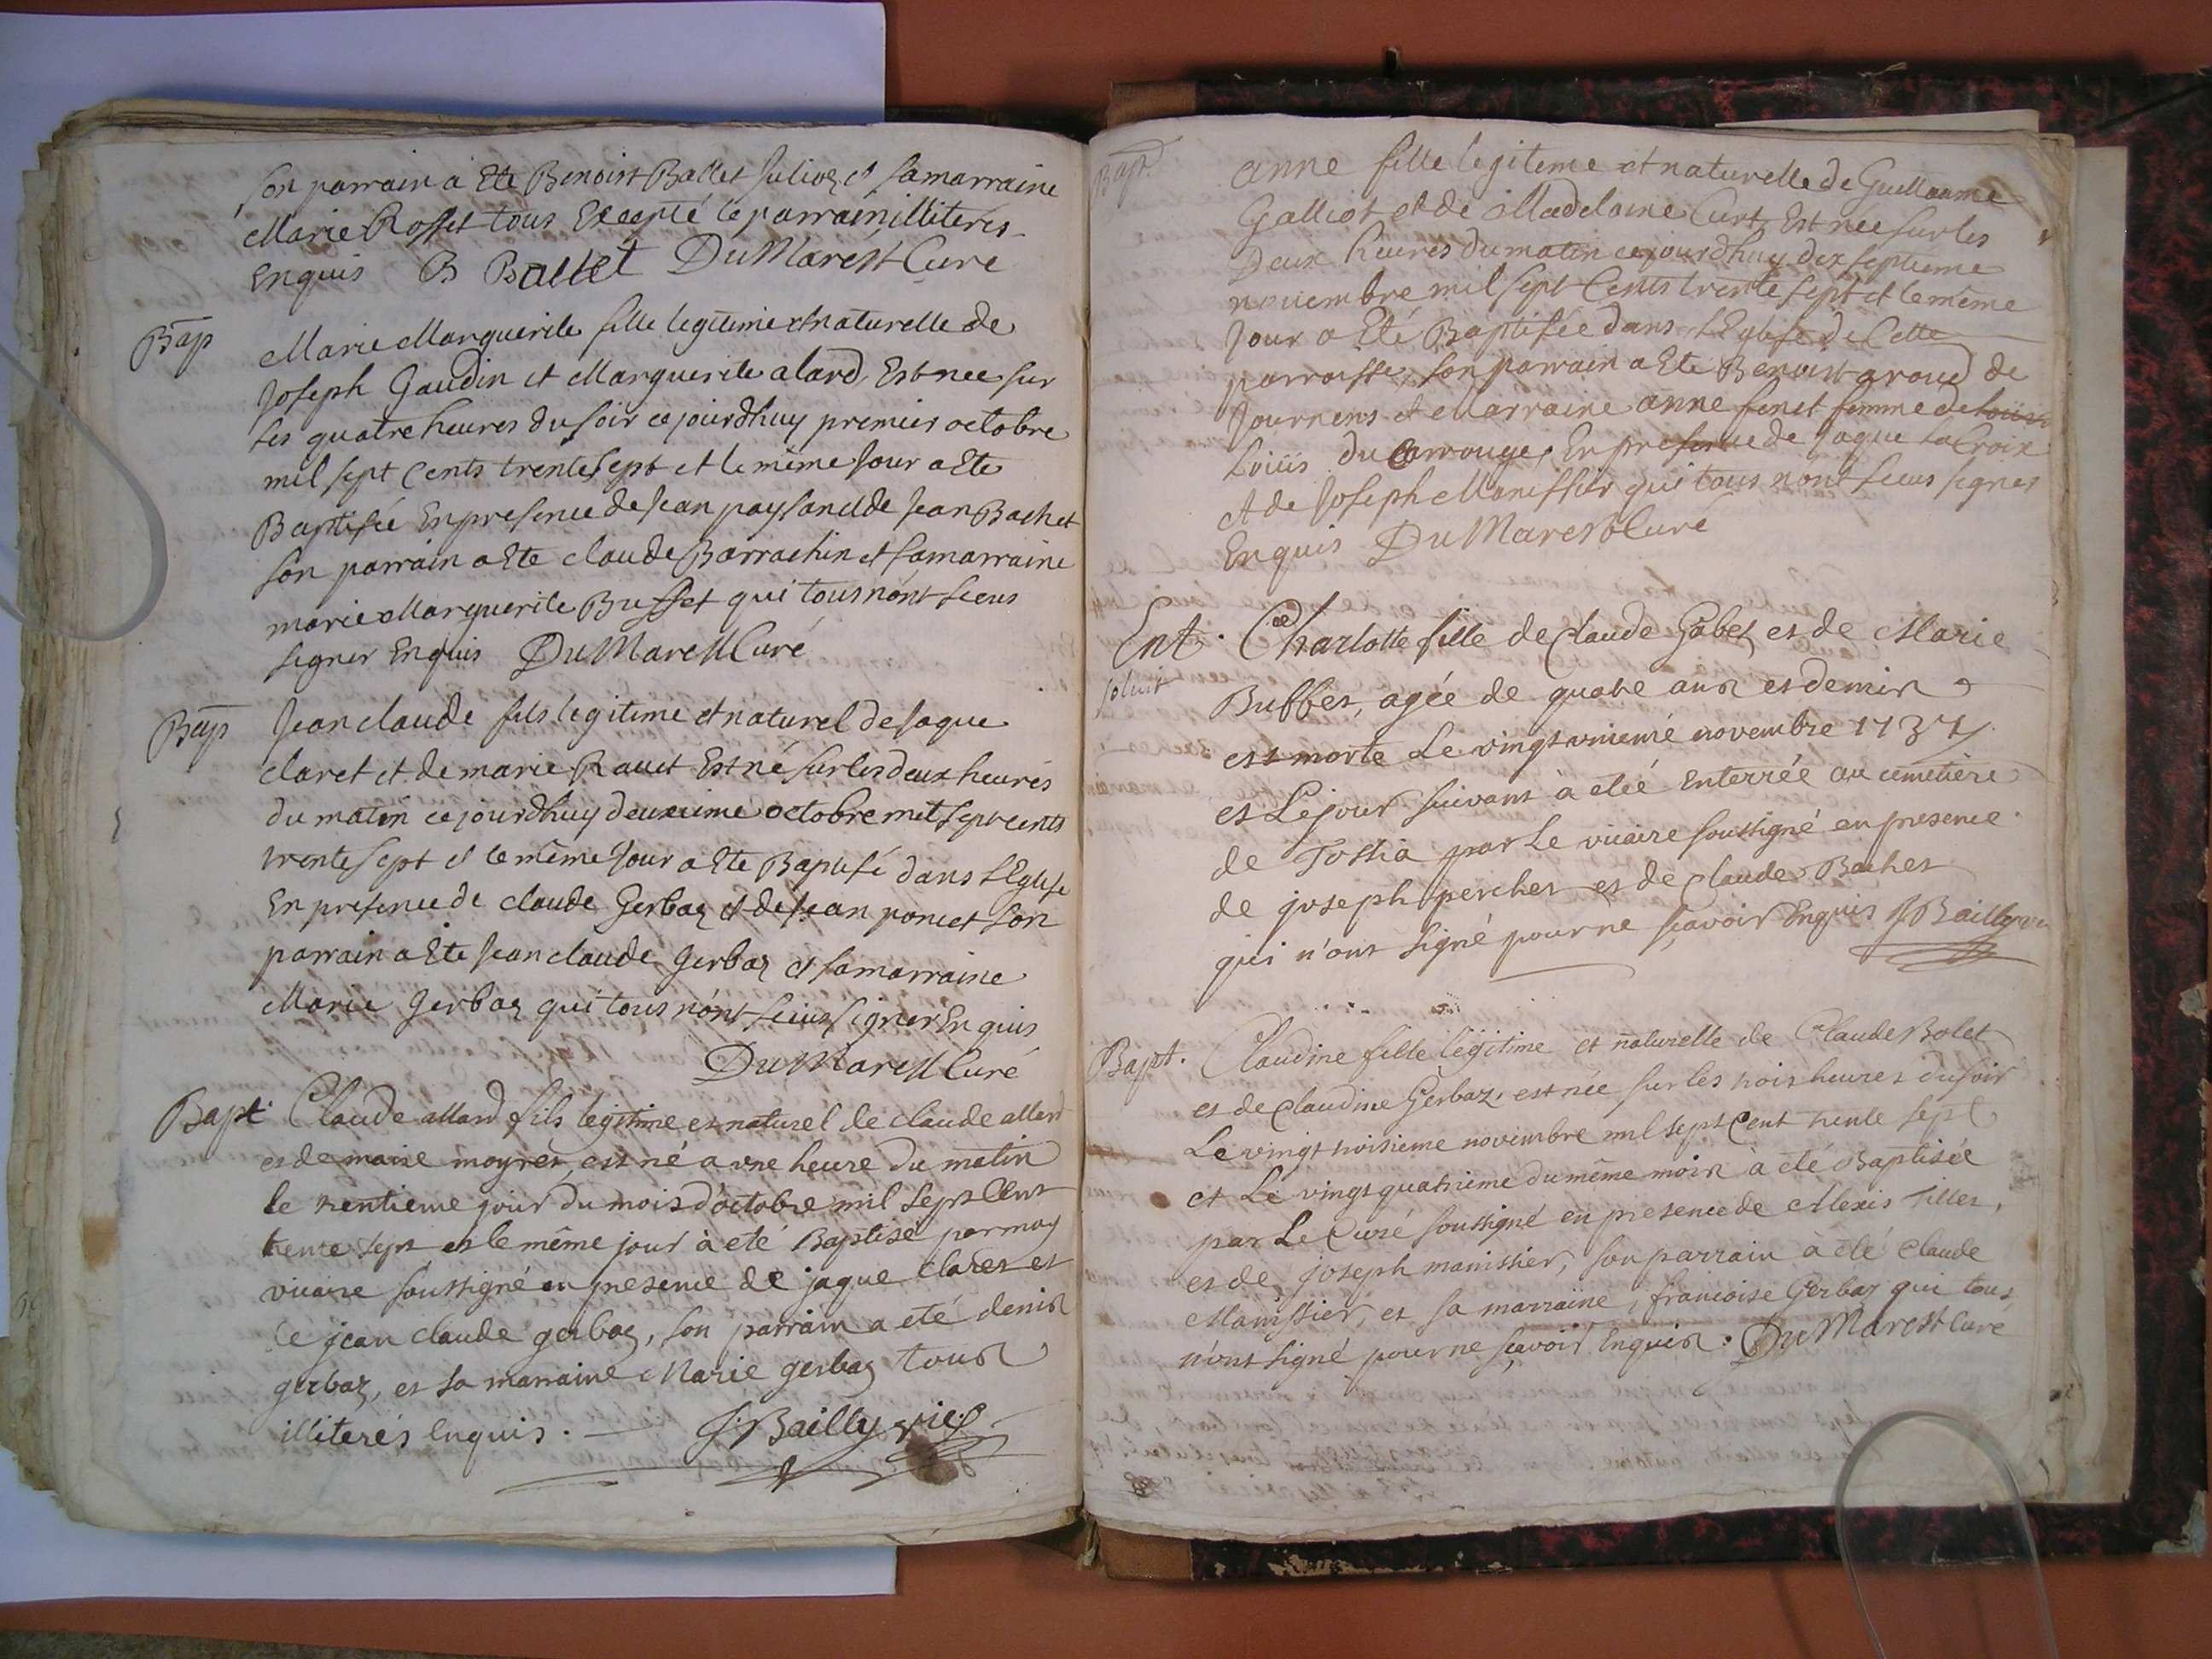 son parrain a Ete Benoist Ballet Julioz et samarraine
Marie Rosset tous Excepté le parrain illiterés
Enquis B Ballet DuMarest Curé
Bap
Marie Marguerite fille legitime et naturelle de
Joseph Gaudin et Marguerite alard, Est nee sur
les quatre heures du soir cejourdhuy premier octobre
mil sept Cents trente sept et le même Jour a Ete
Baptisée En presence de Jean paysan et de Jean Bachet
son parrain a Ete claude Barrachin et samarraine
marie Marguerite Buffet qui tous n'ont sceus
signer Enquis DuMarest Curé
Bap
Jean claude fils legitime et naturel de Jaque
claret et de marie Ravet Est né sur les deux heures
du matin cejourdhuy deuxieme octobre mil sept cents
trente sept et le même Jour a Ete Baptisé dans L'Eglise
En presence de claude Gerbaz et de Jean poncet son
parrain a Ete Jean claude Gerbaz et samarraine
Marie Gerbaz qui tous n'ont sceus signer Enquis
DuMarest Curé
Bapt
Claude allard fils legitime et naturel de claude allard
et de marie moyret, est né a une heure du matin
le trentieme jour du mois d'octobre mil sept Cent
trente sept et le même jour à eté Baptisé par moy
vicaire soussigné en presence de jaque claret et
de jean claude gerbaz, son parrain a eté denis
gerbaz, et sa marraine Marie gerbaz tous
illiterés Enquis. J: Bailly vic:
Bapt
anne fille legiteme et naturelle de Guellaume
Galliot et de Madelaine Curt, Est nee sur les
Deux heures du matin cejourdhuy dix septieme
novembre mil sept Cents trente sept et le même
Jour a Eté Baptisée dans L'Eglise de Cette
parroisse, son parrain a Ete Benoist groud de
Journens et Marraine anne fenet femme de loüis
Loüis du Carrouge, En presence de Jaque La Croix
et de Joseph Manissier qui tous n'ont sceus signer
Enquis DuMarest Curé
Ent.
soluit
Charlotte fille de Claude Gabet et de Marie
Buffet, agée de quatre ans et demis
est morte Le vingt unieme novembre 1737
et Le jour suivant à etée Enterrée au cimetiere
de Tossia par Le vicaire soussigné en presence
de joseph perchet et de Claude Bachet
qui n'ont signé pour ne sçavoir Enquis J Bailly vic
Bapt.
Claudine fille legitime et naturelle de Claude Bolet
et de Claudine Gerbaz, est née sur les trois heures du soir
Le vingt troisieme novembre mil sept Cent trente sept
et Le vingt quatrieme du même mois à eté Baptisée
par Le Curé soussigné en presence de Alexis Tillet,
et de joseph manissier, son parrain à eté claude
Manissier, et sa marraine, francoise Gerbaz qui tous
n'ont signé pour ne sçavoir Enquis. DuMarest Curé